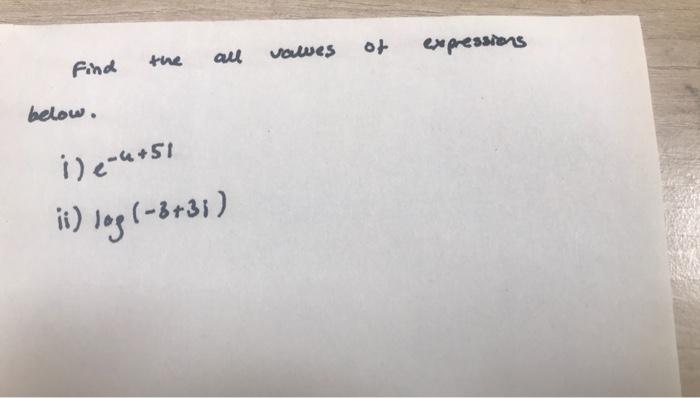 Find the all values of expressions
below.
i) e^-4+5i
ii) log(-3+3i)